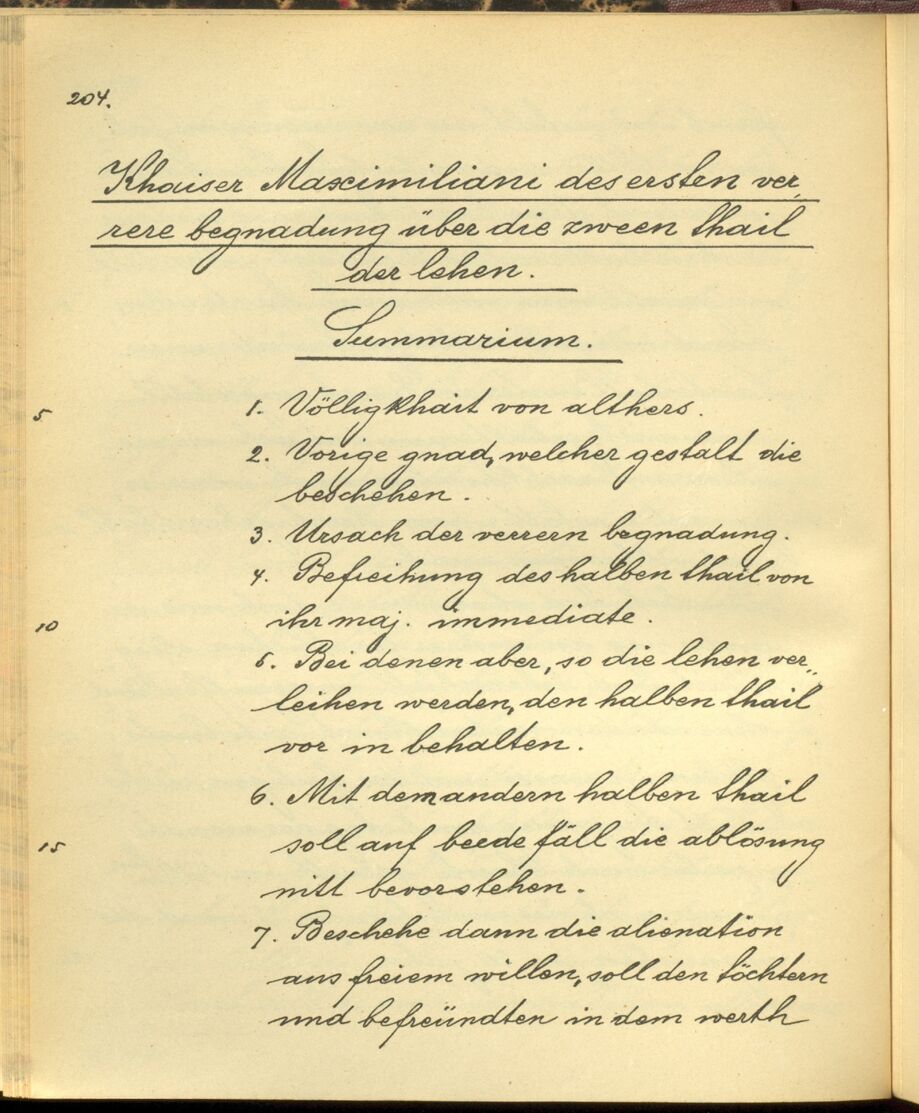 204.
Khaiser Maximiliani des ersten ver,
rere begnadung über die zween thail
der lehen.
Summarium.
5 1. Völligkhait von althers.
2. Vorige gnad, welcher gestalt die
beschehen.
3. Ursach der verrern begnadung.
4. Befreihung des halben thail von
10 ihr maj. immediate.
5. Bei denen aber, so die lehen ver„
leihen werden, den halben thail
vor in behalten.
6. Mit dem andern halben thail
15 soll auf beede fäll die ablösung
nitt bevorstehen.
7. Beschehe dann die alienation
aus freiem willen, soll den töchtern
und befreündten in dem werth